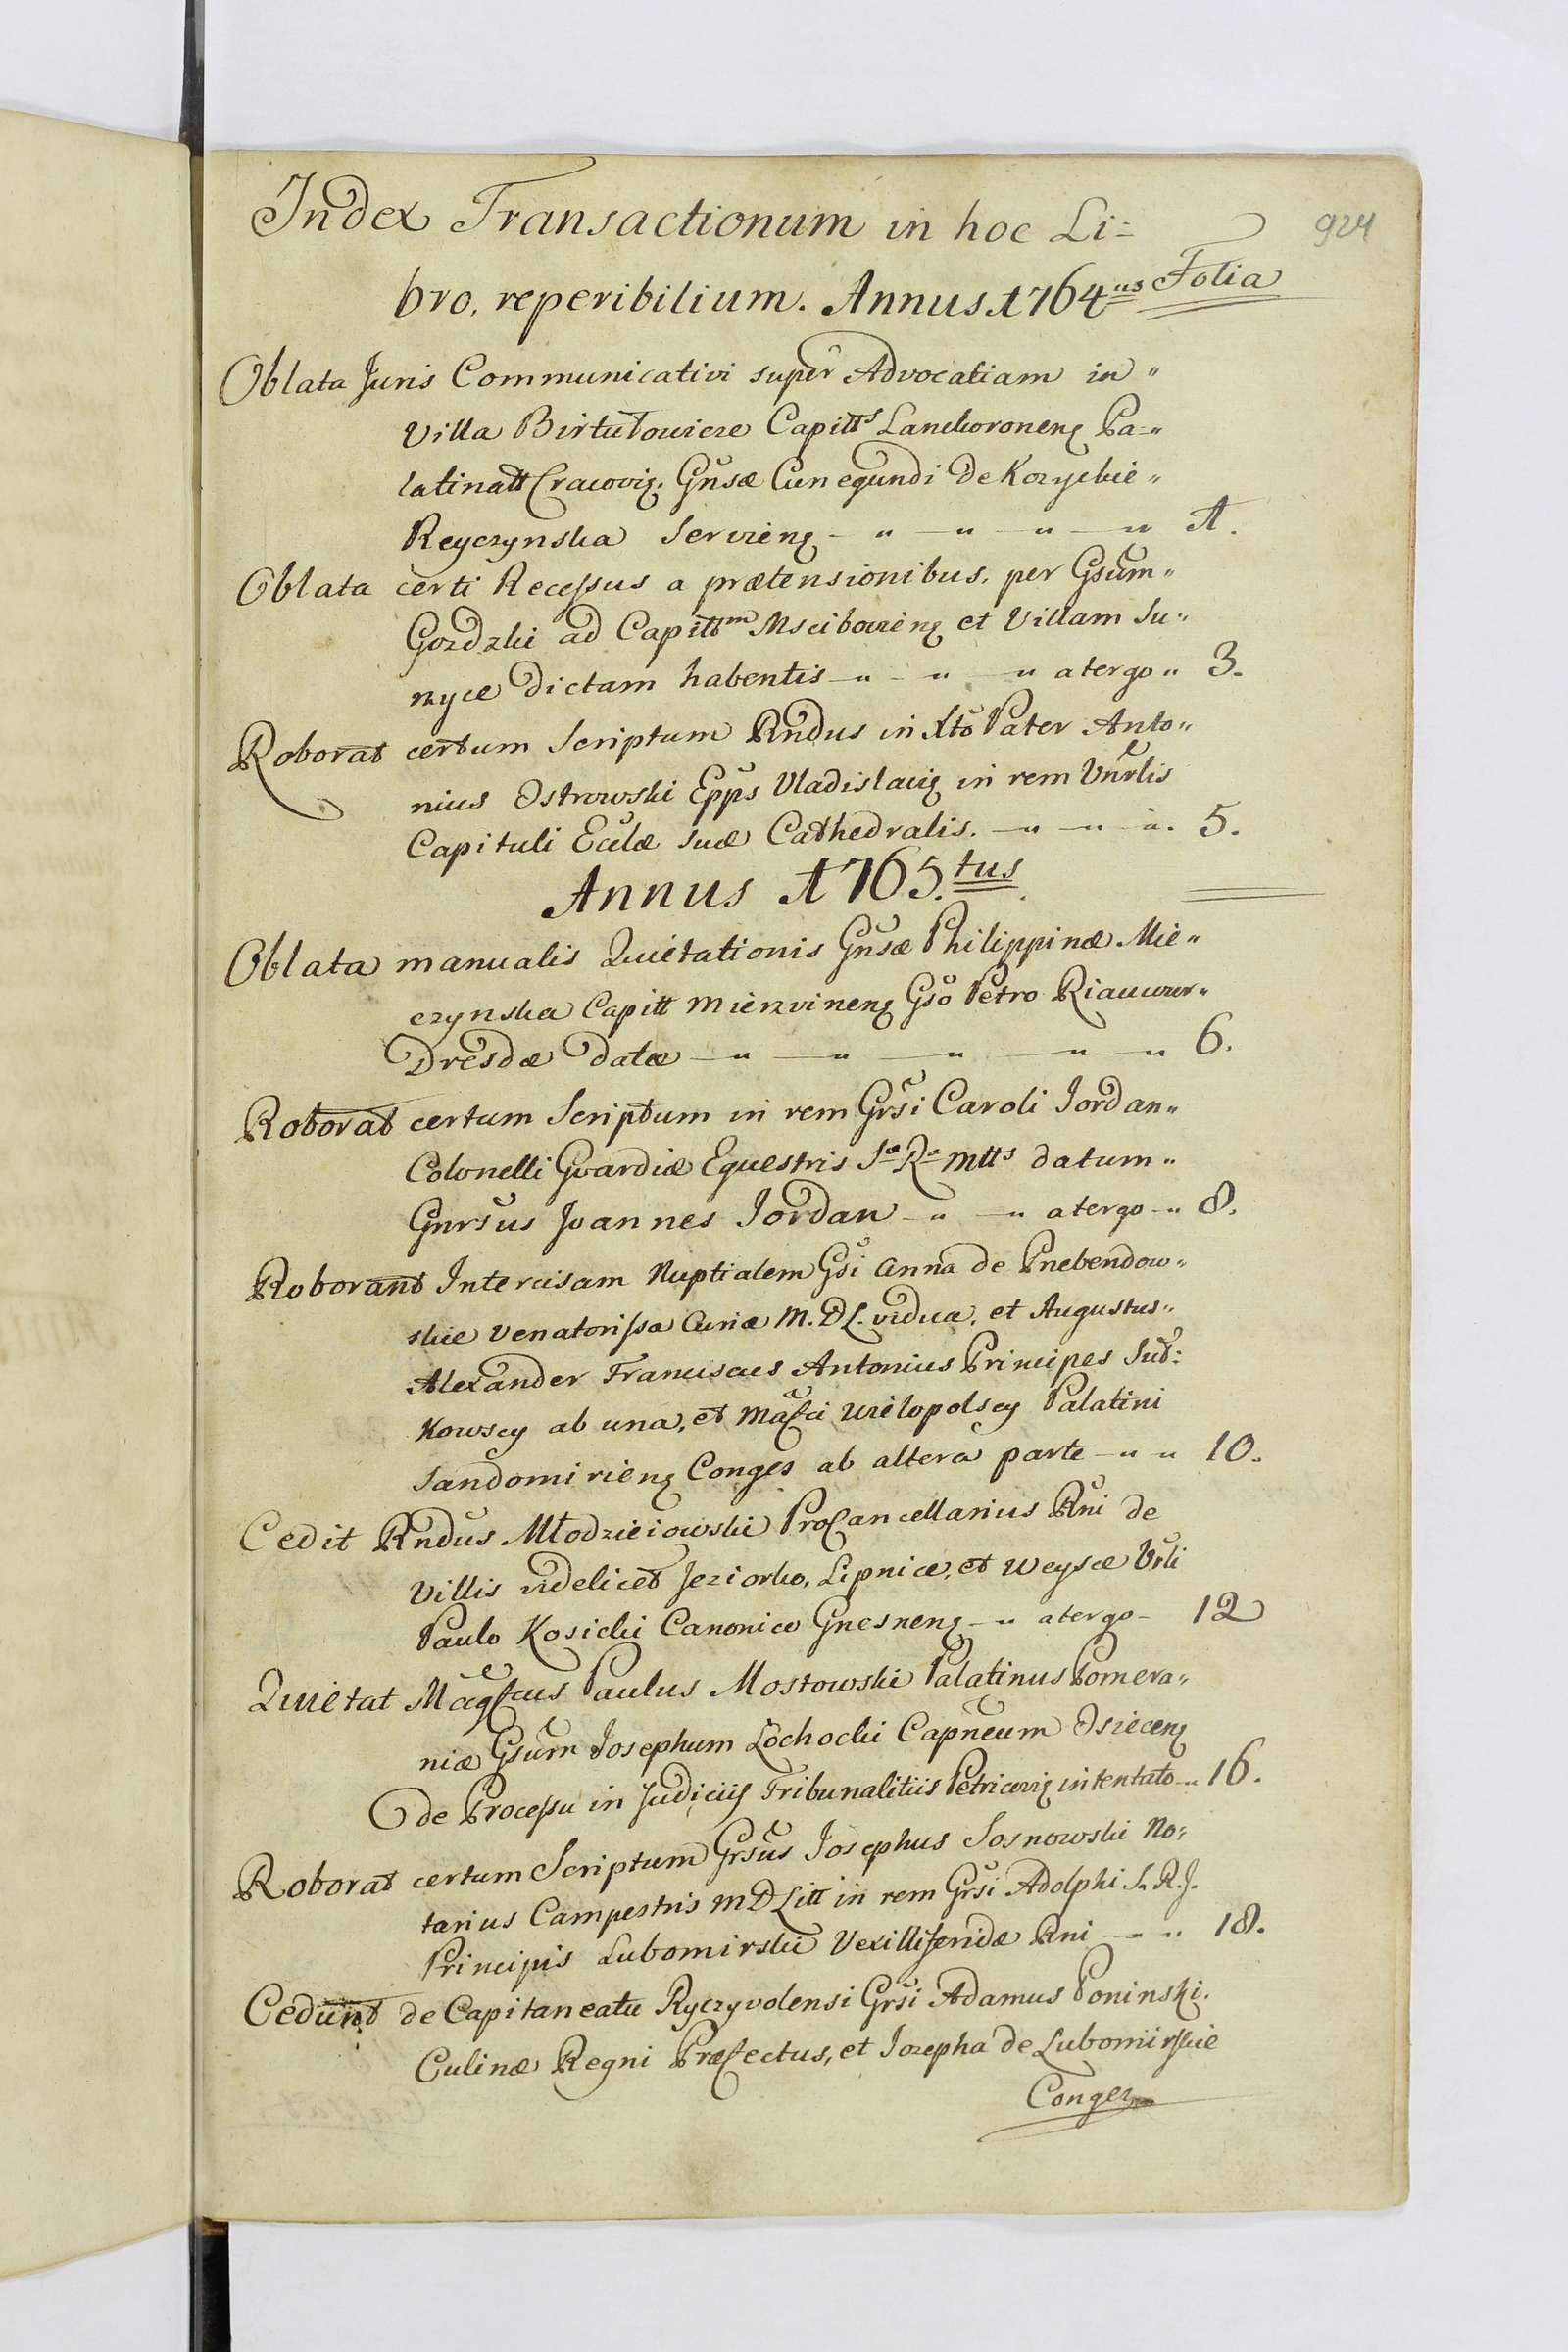 924
Index Transactionum in hoc Li=
bro, reperibilium. Annus 1764us Folia
Oblata Juris Communicativi super Advocatiam in "
Villa Birtułowice Capitts Lanckoronenς Pa="
latinatt Cracoviς. Gnsæ Cunegundi de Kozyckie "
Reyczynska Servienς - " - " - " - " 1.
Oblata certi Recessus a prætensionibus, per Gsum "
Gozdzki ad Capittm Mscibovienς et Villam Su "
myce dictam habentis - " - " - " atergo " 3.
Roborat certum Scriptum Rndus in Xto Pater Anto "
nius Ostrowski Epps Vladislaviς in rem Vnrlis
Capituli Eclæ suæ Cathedralis. - " - " - ". 5.
Annus 1765.tus
Oblata manualis Quietationis Gnsæ Philippinæ Mie "
czynska Capitt Mierzvinenς Gso Petro Riaucour "
Dresdæ datæ - " - " - " - " - " 6.
Roborat certum Scriptum in rem Grsi Caroli Jordan "
Colonelli Gvardiæ Equestris Sæ Ræ Mtts datum "
Gnrsus Joannes Jordan - " - " atergo - " 8.
Roborant Intercisam Nuptialem Gsi Anna de Prebendow "
skie Venatorissa Curiæ M. D L. vidua, et Augustus "
Alexander Franciscus Antonius Principes Suł:
kowscy ab una, et Mafci Wielopolscy Palatini
Sandomirienς Conges ab altera parte - " " 10.
Cedit Rndus Młodzieiowski ProCancellarius Rni de
Villis videlicet Jeziorko, Lipnice, et Weysce Vrli
Paulo Kosicki Canonico Gnesnenς - " atergo - 12
Quietat Magfcus Paulus Mostowski Palatinus Pomera "
niæ Gsum Josephum Łochocki Capneum Osiecenς
de Processu in Judiciis Tribunalitiis Petricoviς intentato - " 16.
Roborat certum Scriptum Grsus Josephus Sosnowski No:
tarius Campestris M D Litt in rem Grsi Adolphi S. R. J.
Principis Lubomirski Vexilliferidæ Rni - " " 18.
Cedunt de Capitaneatu Ryczyvolensi Grsi Adamus Poninski.
Culinæ Regni Præfectus, et Jozepha de Lubomirskie
Conges